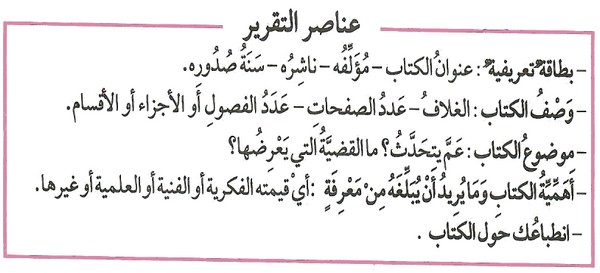 عناصر التقرير
- بطاقةٌ تعريفيةٌ : عنوانُ الكتاب - مُؤَلِّفُه - ناشِرُه - سَنَةُ صُدُورِه.
- وَصْفُ الكتاب : الغلافُ - عَدَدُ الصفحاتِ - عَدَدُ الفصولِ أَو الأجزاء أو الأقسام.
- مِوضوعُ الكتاب : عَمَّ يتحَدَّثُ؟ ما القضيَّةُ التي يَعْرِضُها؟
- أَهَمِّيَّةُ الكتابِ وَمَا يُرِيدُ أَنْ يُبَلِّغَهُ مِنْ مَعْرِفَةٍ : أيْ قيمته الفكرية أو الفنية أو العلمية أو غيرها.
- انطباعُك حول الكتاب .